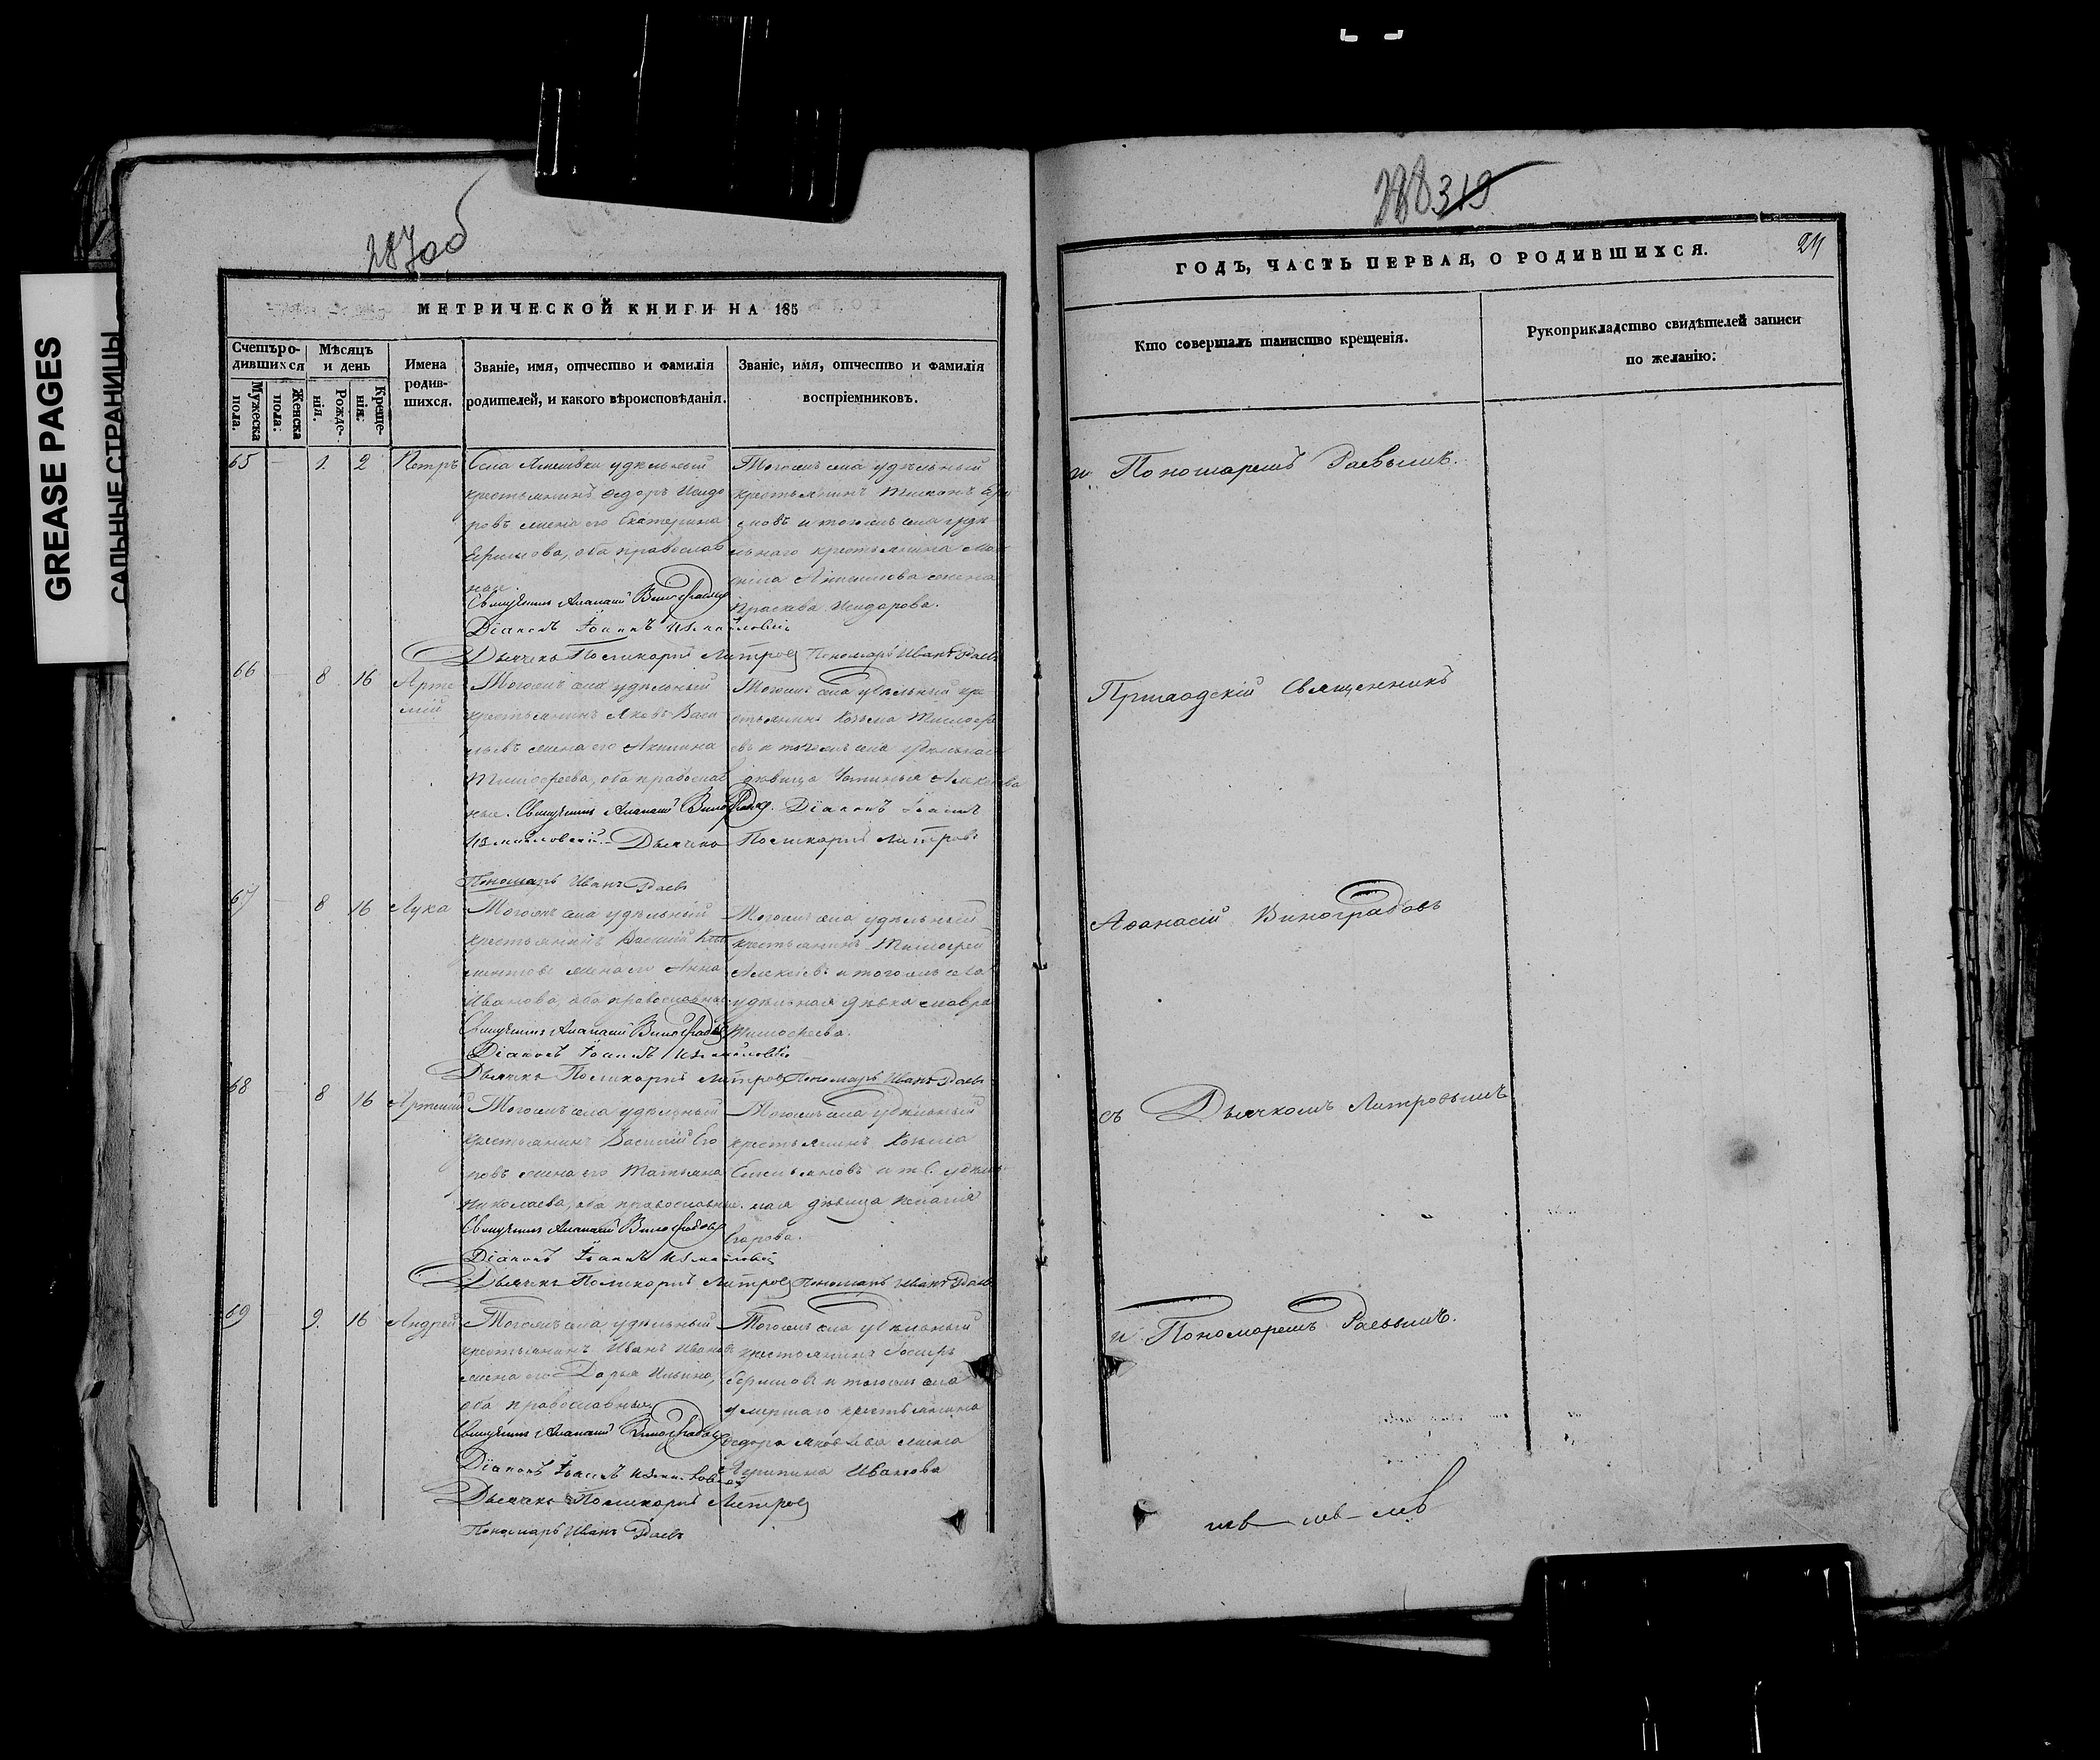 GREASE PAGES
САЛЬНЫЕ СТРАНИЦЫ
287об
МЕТРИЧЕСКОЙ КНИГИ НА 185
Счетъ родившихся
Мужеска пола.
Женска пола.
Мѣсяцъ и день
Рожденія.
Крещенія.
Имена родившихся.
Званіе, имя, отчество и фамилія
родителей, и какого вѣроисповѣданія.
Званіе, имя, отчество и фамилія
воспріемниковъ.
65 1. 2 Петръ
Села удѣльный
крестьянинъ Ѳедоръ Исидо
ровъ жена его Екатерина
Ефимова, оба православ
ные.
Священникъ Аѳанасій Виноградовъ
Діаконъ Іоаннъ Измайловскій
Дьячекъ Поликарпъ Литровъ Пономарь Иванъ Раевъ
Тогожъ села удѣльный
крестьянинъ Тихонъ
и тогожъ села удѣ
льнаго крестьянина
жена
Праскева Исидорова.
66 8 16 Арте
мій
Тогожъ села удѣльный
крестьянинъ Яковъ Васи
льевъ жена его Акилина
Тимофеева, оба православ
ные. Священникъ Аѳанасій Виноградовъ. Діаконъ Іоаннъ
Измайловскій. Дьячекъ Поликарпъ Литровъ
Пономарь Иванъ Раевъ
Тогожъ села удѣльный кре
стьянинъ Козьма Тимофе
евъ и тогожъ села удѣльная
дѣвица Устинья
67 8 16 Лука
Тогожъ села удѣльный
крестьянинъ Василій Кли
ментовъ жена его Анна
Иванова, оба православные
Священникъ Аѳанасій Виноградовъ
Діаконъ Іоаннъ Измайловскій
Дьячекъ Поликарпъ Литровъ Пономарь Иванъ Раевъ
Тогожъ села удѣльный
крестьянинъ Тимофей
Алексѣевъ и тогожъ села
удѣльная дѣвка Мавра
Тимофеева.
68 8 16 Артемій
Тогожъ села удѣльный
крестьянинъ Василій Его
ровъ жена его Татьяна
Николаева, оба православные.
Священникъ Аѳанасій Виноградовъ
Діаконъ Іоаннъ Измайловскій
Дьячекъ Поликарпъ Литровъ Пономарь Иванъ Раевъ
Тогожъ села удѣльный
крестьянинъ Козьма
Емельяновъ и т. с. удѣль
ная дѣвица Пелагія
Егорова.
69 9. 16 Андрей
Тогожъ села удѣльный
крестьянинъ Иванъ Ивановъ
жена его Дарья Ильина,
оба православные.
Священникъ Аѳанасій Виноградовъ
Діаконъ Іоаннъ Измайловскій
Дьячекъ Поликарпъ Литровъ
Пономарь Иванъ Раевъ
Тогожъ села удѣльный
крестьянинъ
и тогожъ села
умершаго крестьянина
Ѳедора Яковлева жена
Агрипина Иванова
288 319
24
ГОДЪ, ЧАСТЬ ПЕРВАЯ, О РОДИВШИХСЯ.
Кто совершалъ таинство крещенія.
Рукоприкладство свидѣтелей записи
по желанію.
и Пономаремъ Раевымъ.
Приходскій Священникъ
Аѳанасій Виноградовъ
съ Дьячкомъ Литровымъ
и Пономаремъ Раевымъ.